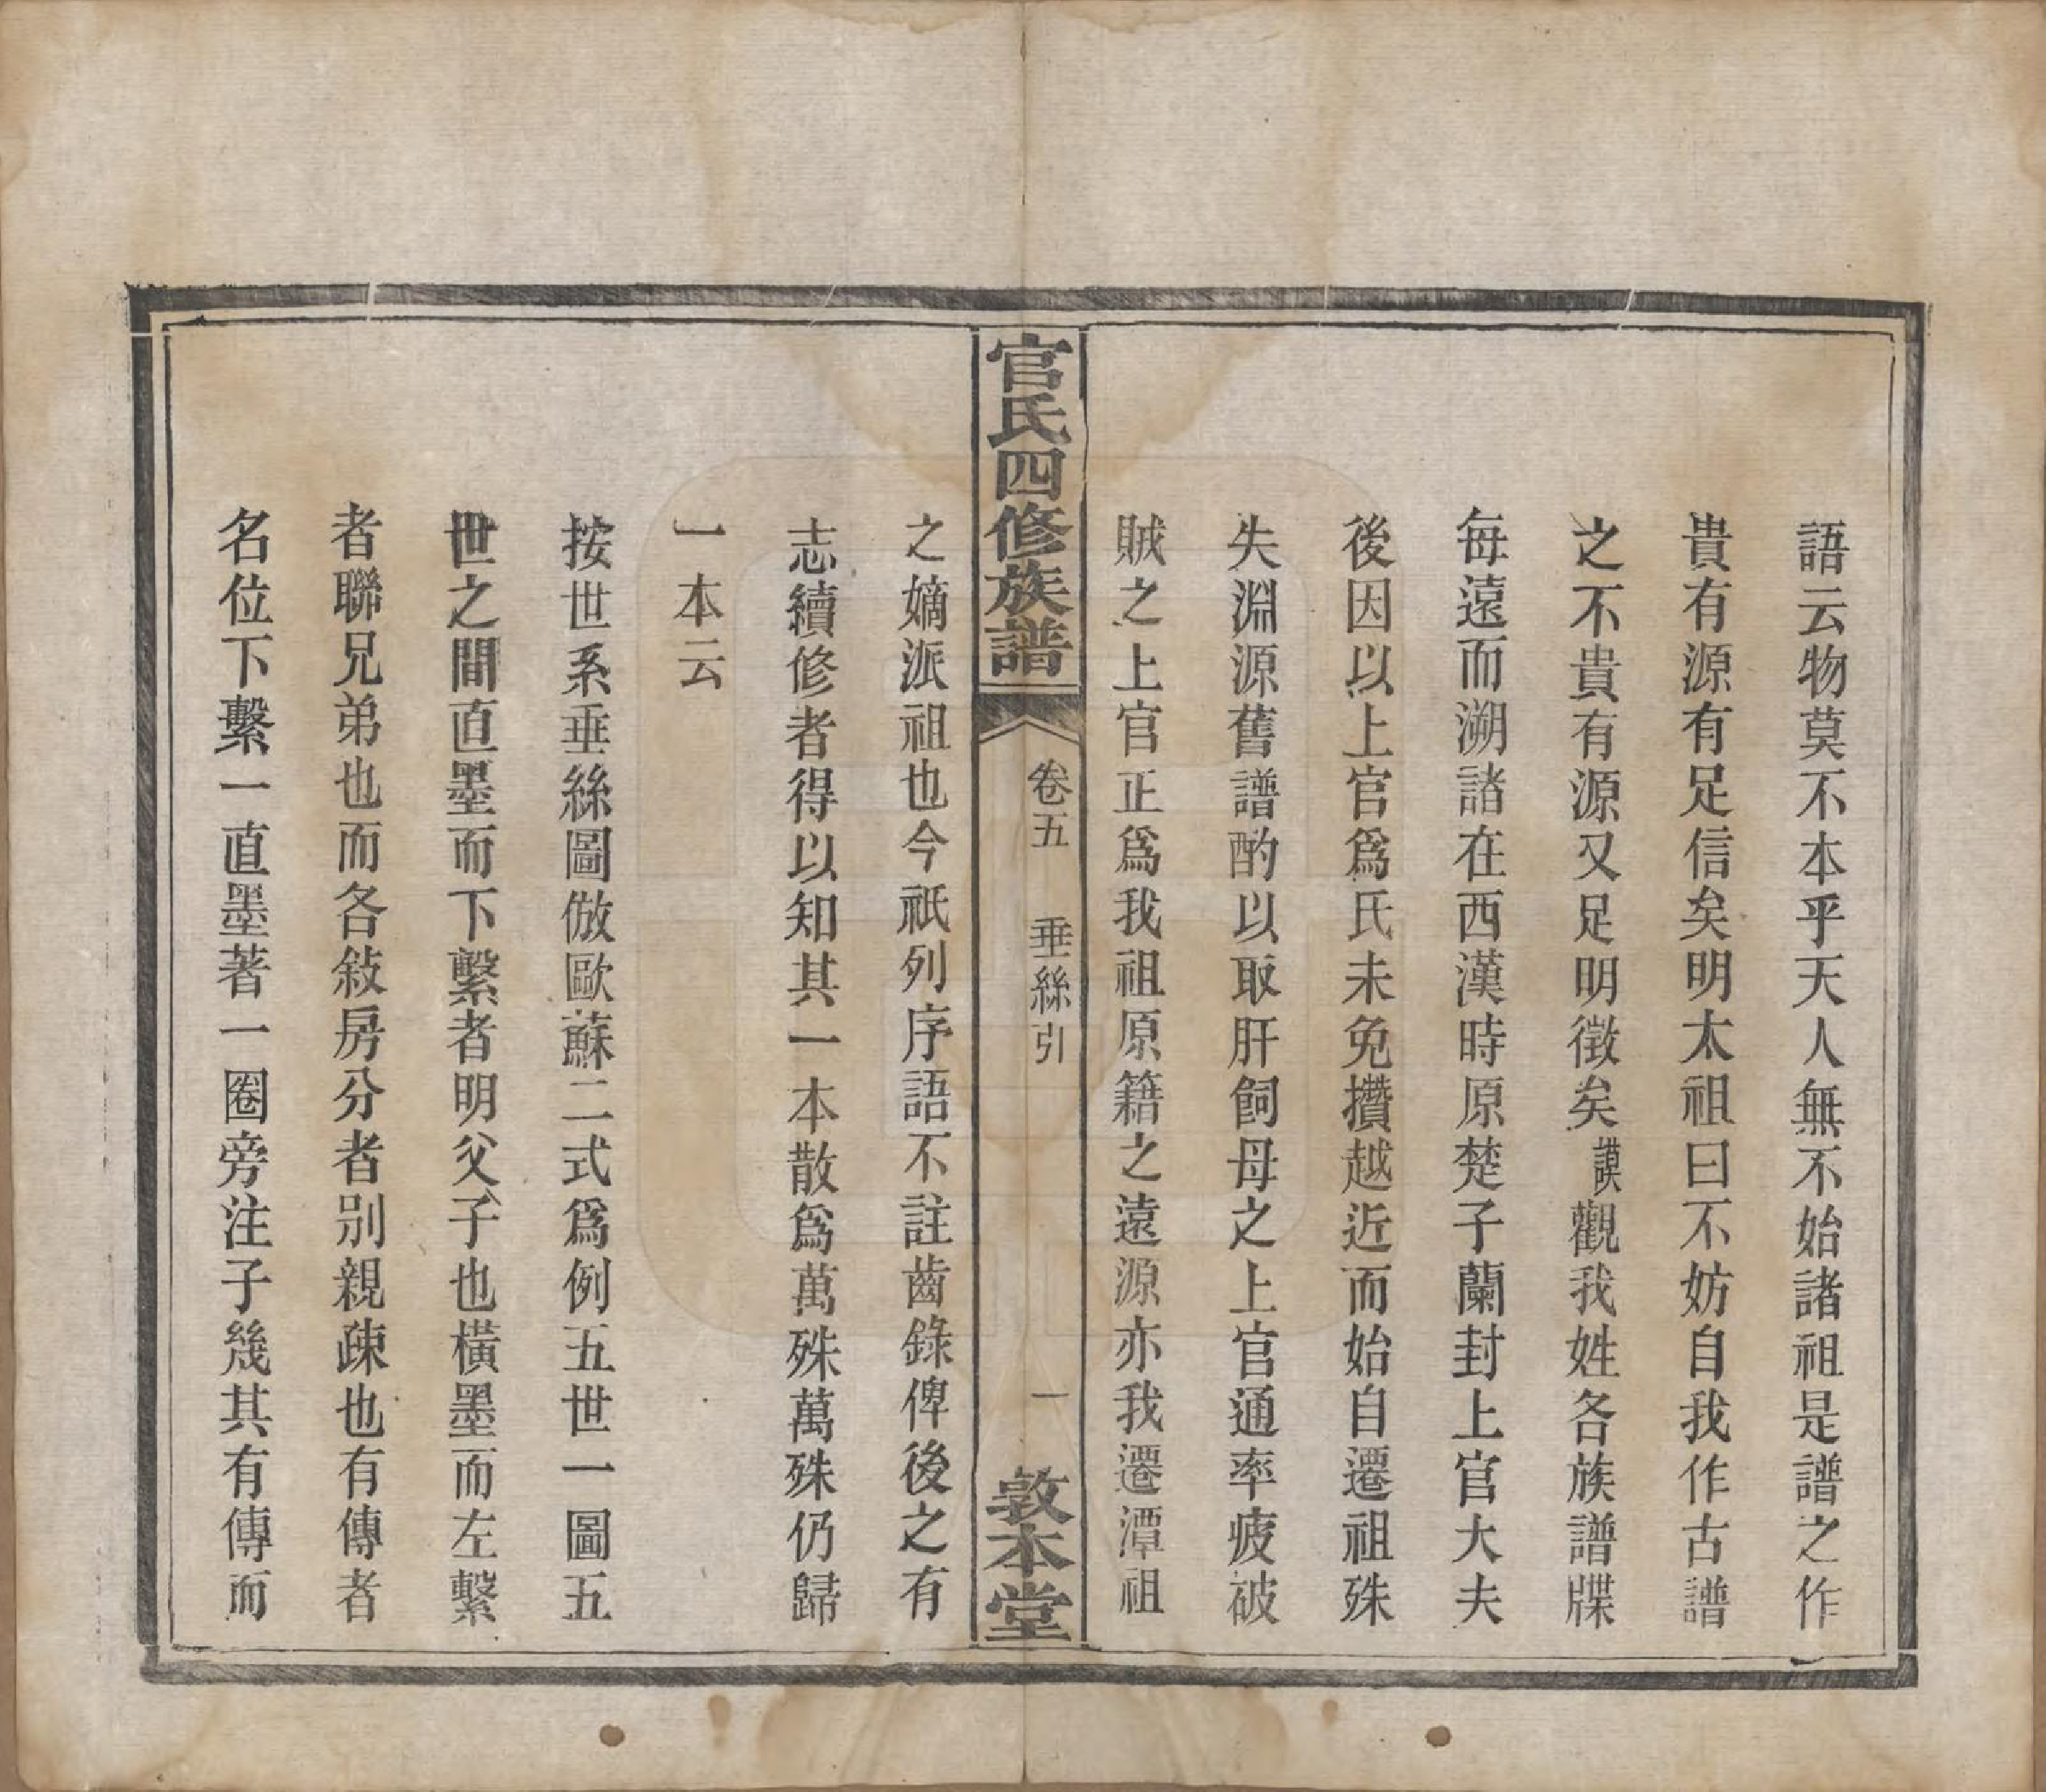 語云物莫不本乎天人無不始諸祖是譜之作
貴有源有足信矣明太祖曰不妨自我作古譜
之不貴有源又足明徵矣謨觀我姓各族譜牒
每遠而溯諸在西漢時原楚子蘭封上官大夫
後因以上官爲氏未免攢越近而始自遷祖殊
失淵源舊譜酌以取肝飼母之上官通率疲破
賊之上官正爲我祖原籍之遠源亦我遷潭祖
官氏四修族譜
卷五 垂絲引
一
敦本堂
之嫡派祖也今祇列序語不註齒錄俾後之有
志續修者得以知其一本散爲萬殊萬殊仍歸
一本云
按世系垂絲圖倣歐蘇二式爲例五世一圖五
世之間直墨而下繫者明父子也橫墨而左繫
者聯兄弟也而各敍房分者別親疎也有傳者
名位下繫一直墨著一圈旁注子幾其有傳而